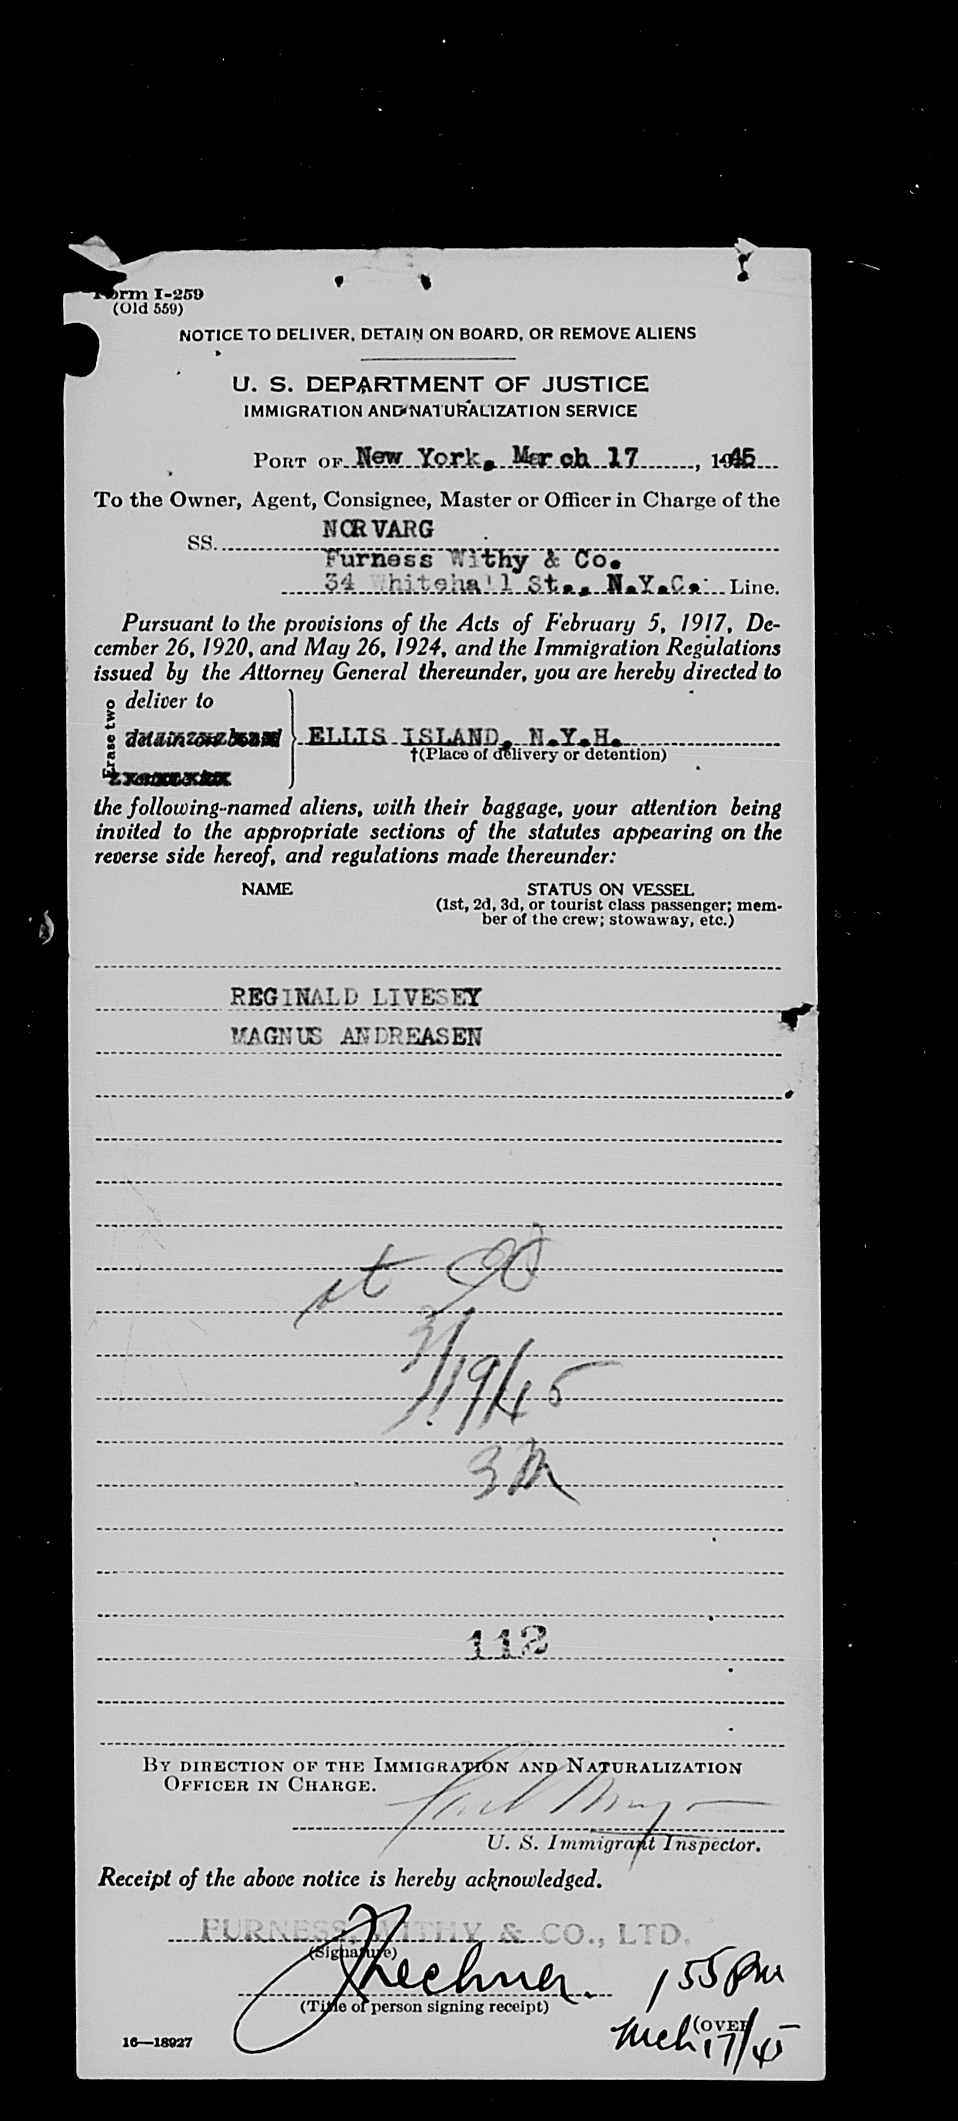 Form I-259
(Old 559)
NOTICE TO DELIVER, DETAIN ON BOARD, OR REMOVE ALIENS
U. S. DEPARTMENT OF JUSTICE
IMMIGRATION AND NATURALIZATION SERVICE
PORT OF New York, March 17, 1945
To the Owner, Agent, Consignee, Master or Officer in Charge of the
SS. NORVARG
Furness Withy & Co.
34 Whitehall St., N.Y.C. Line.
Pursuant to the provisions of the Acts of February 5, 1917, De-
cember 26, 1920, and May 26, 1924, and the Immigration Regulations
issued by the Attorney General thereunder, you are hereby directed to
Erase two
deliver to
detain on board ELLIS ISLAND, N.Y.H.
†(Place of delivery or detention)
the following-named aliens, with their baggage, your attention being
invited to the appropriate sections of the statutes appearing on the
reverse side hereof, and regulations made thereunder:
NAME STATUS ON VESSEL
(1st, 2d, 3d, or tourist class passenger; mem-
ber of the crew; stowaway, etc.)
REGINALD LIVESEY
MAGNUS ANDREASEN
3/19/45
112
BY DIRECTION OF THE IMMIGRATION AND NATURALIZATION
OFFICER IN CHARGE.
U. S. Immigrant Inspector.
Receipt of the above notice is hereby acknowledged.
FURNESS, WITHY & CO., LTD.
(Signature)
(Title of person signing receipt)
1 55 pm
(OVER)
Mch 17/45
16—18927